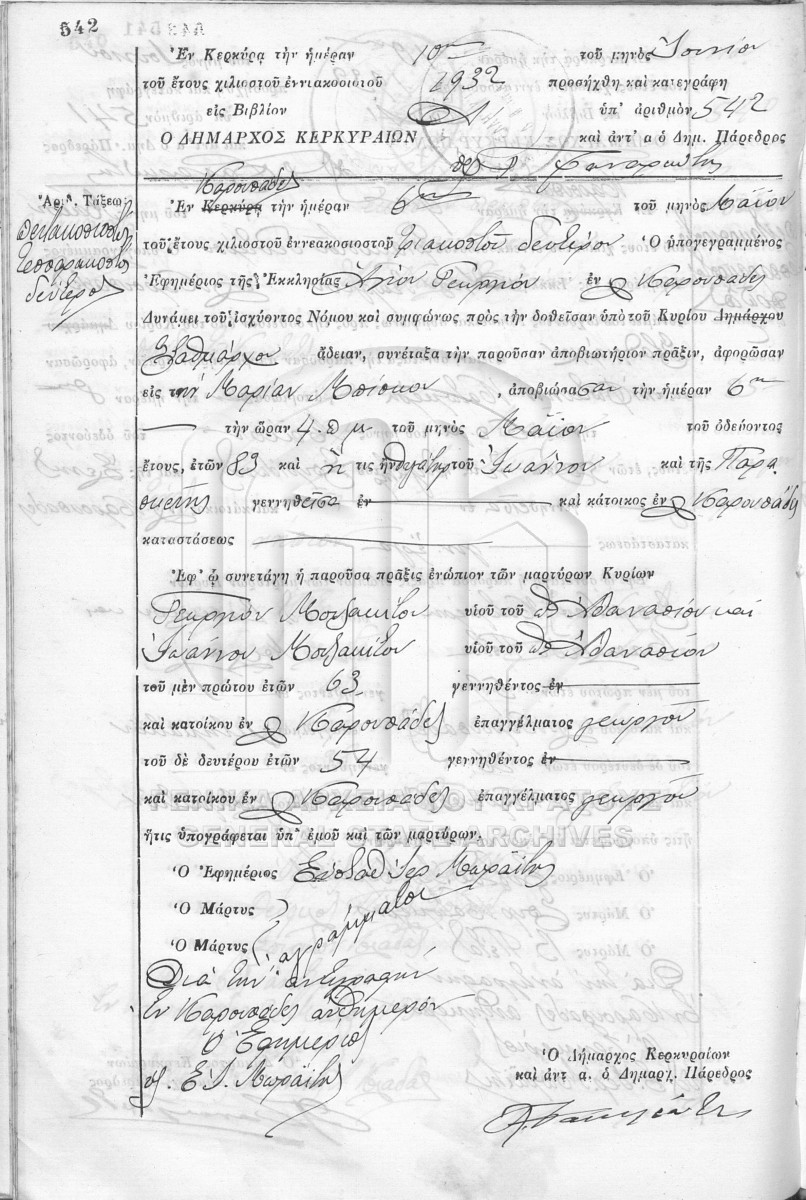 542
Ἐν Κερκύρᾳ τὴν ἡμέραν 10ην τοῦ μηνὸς Ἰουνίου
τοῦ ἔτους χιλιοστοῦ ἐννιακοσιοστοῦ 1932 προσήχθη καὶ κατεγράφη
εἰς Βιβλίον ὑπ' ἀριθμὸν 542
Ο ΔΗΜΑΡΧΟΣ ΚΕΡΚΥΡΑΙΩΝ καὶ ἀντ' α ὁ Δημ. Πάρεδρος
Καρουσάδες
Ἀρι. Τάξεως
πεντακοσιοστὸν
τεσσαρακοστὸν
δεύτερον
Ἐν Κερκύρᾳ τὴν ἡμέραν 6ην τοῦ μηνὸς Μαΐου
τοῦ ἔτους χιλιοστοῦ ἐννεακοσιοστοῦ τριακοστοῦ δευτέρου Ὁ ὑπογεγραμμένος
Ἐφημέριος τῆς Ἐκκλησίας Ἁγίου Γεωργίου ἐν Καρουσάδες
Δυνάμει τοῦ ἰσχύοντος Νόμου καὶ συμφώνως πρὸς τὴν δοθεῖσαν ὑπὸ τοῦ Κυρίου Δημάρχου
Σταθμάρχου ἄδειαν, συνέταξα τὴν παροῦσαν ἀποβιωτήριον πρᾶξιν, ἀφορῶσαν
εἰς τὴν Μαρίαν , ἀποβιώσασαν τὴν ἡμέραν 6ην
τὴν ὥραν 4 μ τοῦ μηνὸς Μαΐου τοῦ ὁδεύοντος
ἔτους, ἐτῶν 83 καὶ ἥτις ἦν θυγάτηρ τοῦ Ἰωάννου καὶ τῆς Παρα
σκευῆς γεννηθεῖσα ἐν καὶ κάτοικος ἐν Καρουσάδες
καταστάσεως
Ἐφ' ᾧ συνετάγη ἡ παροῦσα πρᾶξις ἐνώπιον τῶν μαρτύρων Κυρίων
Γεωργίου Μουζακίτου υἱοῦ τοῦ Ἀθανασίου καὶ
Ἰωάννου Μουζακίτου υἱοῦ τοῦ Ἀθανασίου
τοῦ μὲν πρώτου ἐτῶν 63 γεννηθέντος ἐν
καὶ κατοίκου ἐν Καρουσάδες ἐπαγγέλματος γεωργοῦ
τοῦ δὲ δευτέρου ἐτῶν 54 γεννηθέντος ἐν
καὶ κατοίκου ἐν Καρουσάδες ἐπαγγέλματος γεωργοῦ
ΓΕΝΙΚΑ ΑΡΧΕΙΑ ΤΟΥ ΚΡΑΤΟΥΣ
ἥτις ὑπογράφεται ὑπ' ἐμοῦ καὶ τῶν μαρτύρων.
GENERAL STATE ARCHIVES
Ὁ Ἐφημέριος Εὐσταθ Ἱερ Μωραΐτης
Ὁ Μάρτυς
Ὁ Μάρτυς ἀγράμματοι
Διὰ τὴν ἀντιγραφὴν
Ἐν Καρουσάδες αὐθημερόν
Ὁ Ἐφημέριος
Ε. Ι. Μωραΐτης
Ὁ Δήμαρχος Κερκυραίων
καὶ ἀντ α. ὁ Δημαρχ. Πάρεδρος